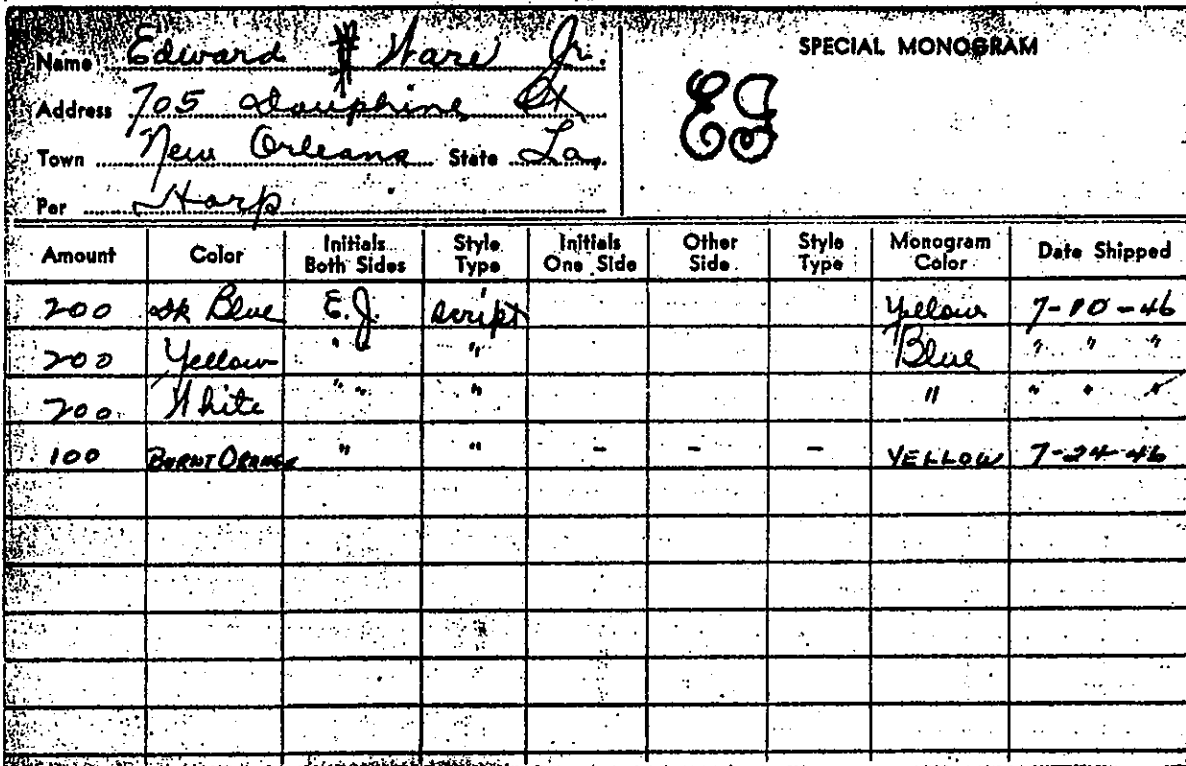 Name Edward # Ware Jr.
SPECIAL MONOGRAM
Address 705 Dauphine St
EJ
Town New Orleans State La.
Per Harp
Amount Color Initials Both Sides Style Type Initials One Side Other Side Style Type Monogram Color Date Shipped
200 Dk Blue E.J. script Yellow 7-10-46
200 Yellow " " " Blue " " "
200 White " " " " " " "
100 BURNT ORANGE " " - - - YELLOW 7-24-46